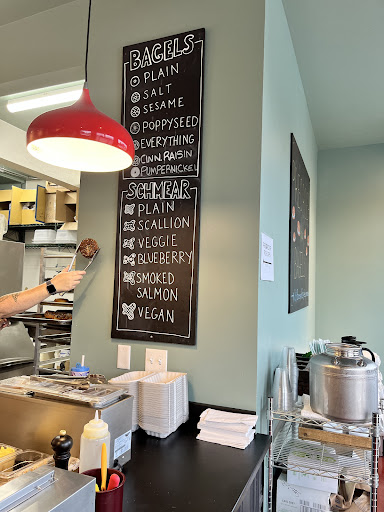 BAGELS
PLAIN
SALT
SESAME
POPPYSEED
EVERYTHING
CINN. RAISIN
PUMPERNICKEL
SCHMEAR
PLAIN
SCALLION
VEGGIE
BLUEBERRY
SMOKED
SALMON
VEGAN